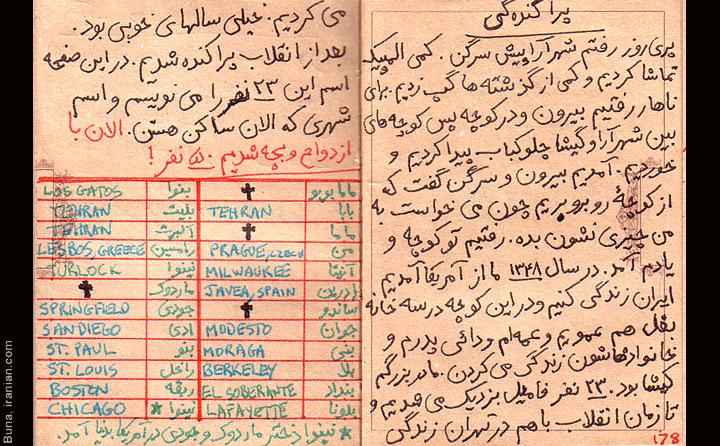 پراکندگی
پری روز رفتم شهرآرا پیش سرگن. کمی المپیک
تماشا کردیم و کمی از گذشته ها گپ زدیم. برای
ناهار رفتیم بیرون و در کوچه پس کوچه های
بین شهرآرا و گیشا چلوکباب پیدا کردیم و
خوردیم. آمدیم بیرون و سرگن گفت که
از کوچهٔ روبرو بریم چون می خواست به
من چیزی نشون بده. رفتیم تو کوچه و
یادم آمد. در سال ۱۳۴۸ ما از آمریکا آمدیم
ایران زندگی کنیم و در این کوچه در سه خانه
بغل هم عمویم و عمه ام و دائی پدرم و
خانواده هاشون زندگی می کردن. مادربزرگم
گیشا بود. ۲۳ نفر فامیل نزدیک می شدیم و
تا زمان انقلاب با هم در تهران زندگی
178
می کردیم. خیلی سالهای خوبی بود.
بعد از انقلاب پراکنده شدیم. در این صفحه
اسم این ۲۳ نفر را می نویسم و اسم
شهری که الان ساکن هستن. الان با
ازدواج و بچه شدیم نفر!
مامابوبو ✝ نینوا LOS GATOS
بابا TEHRAN بلیت TEHRAN
ماما ✝ آلبرت TEHRAN
من PRAGUE, CZECH رامسین LESBOS, GREECE
آنیتا MILWAUKEE نینوا TURLOCK
JAVEA, SPAIN ماردوک ✝
ساندو ✝ جودی SPRINGFIELD
جوان MODESTO ادی SAN DIEGO
بنی MORAGA بنو ST. PAUL
بلا BERKELEY راحل ST. LOUIS
بنداد EL SOBERANTE ربقه BOSTON
یلونا LAFAYETTE نینوا * CHICAGO
* نینوا دختر ماردوک و جودی در آمریکا بدنیا آمد.
Buna, iranian.com